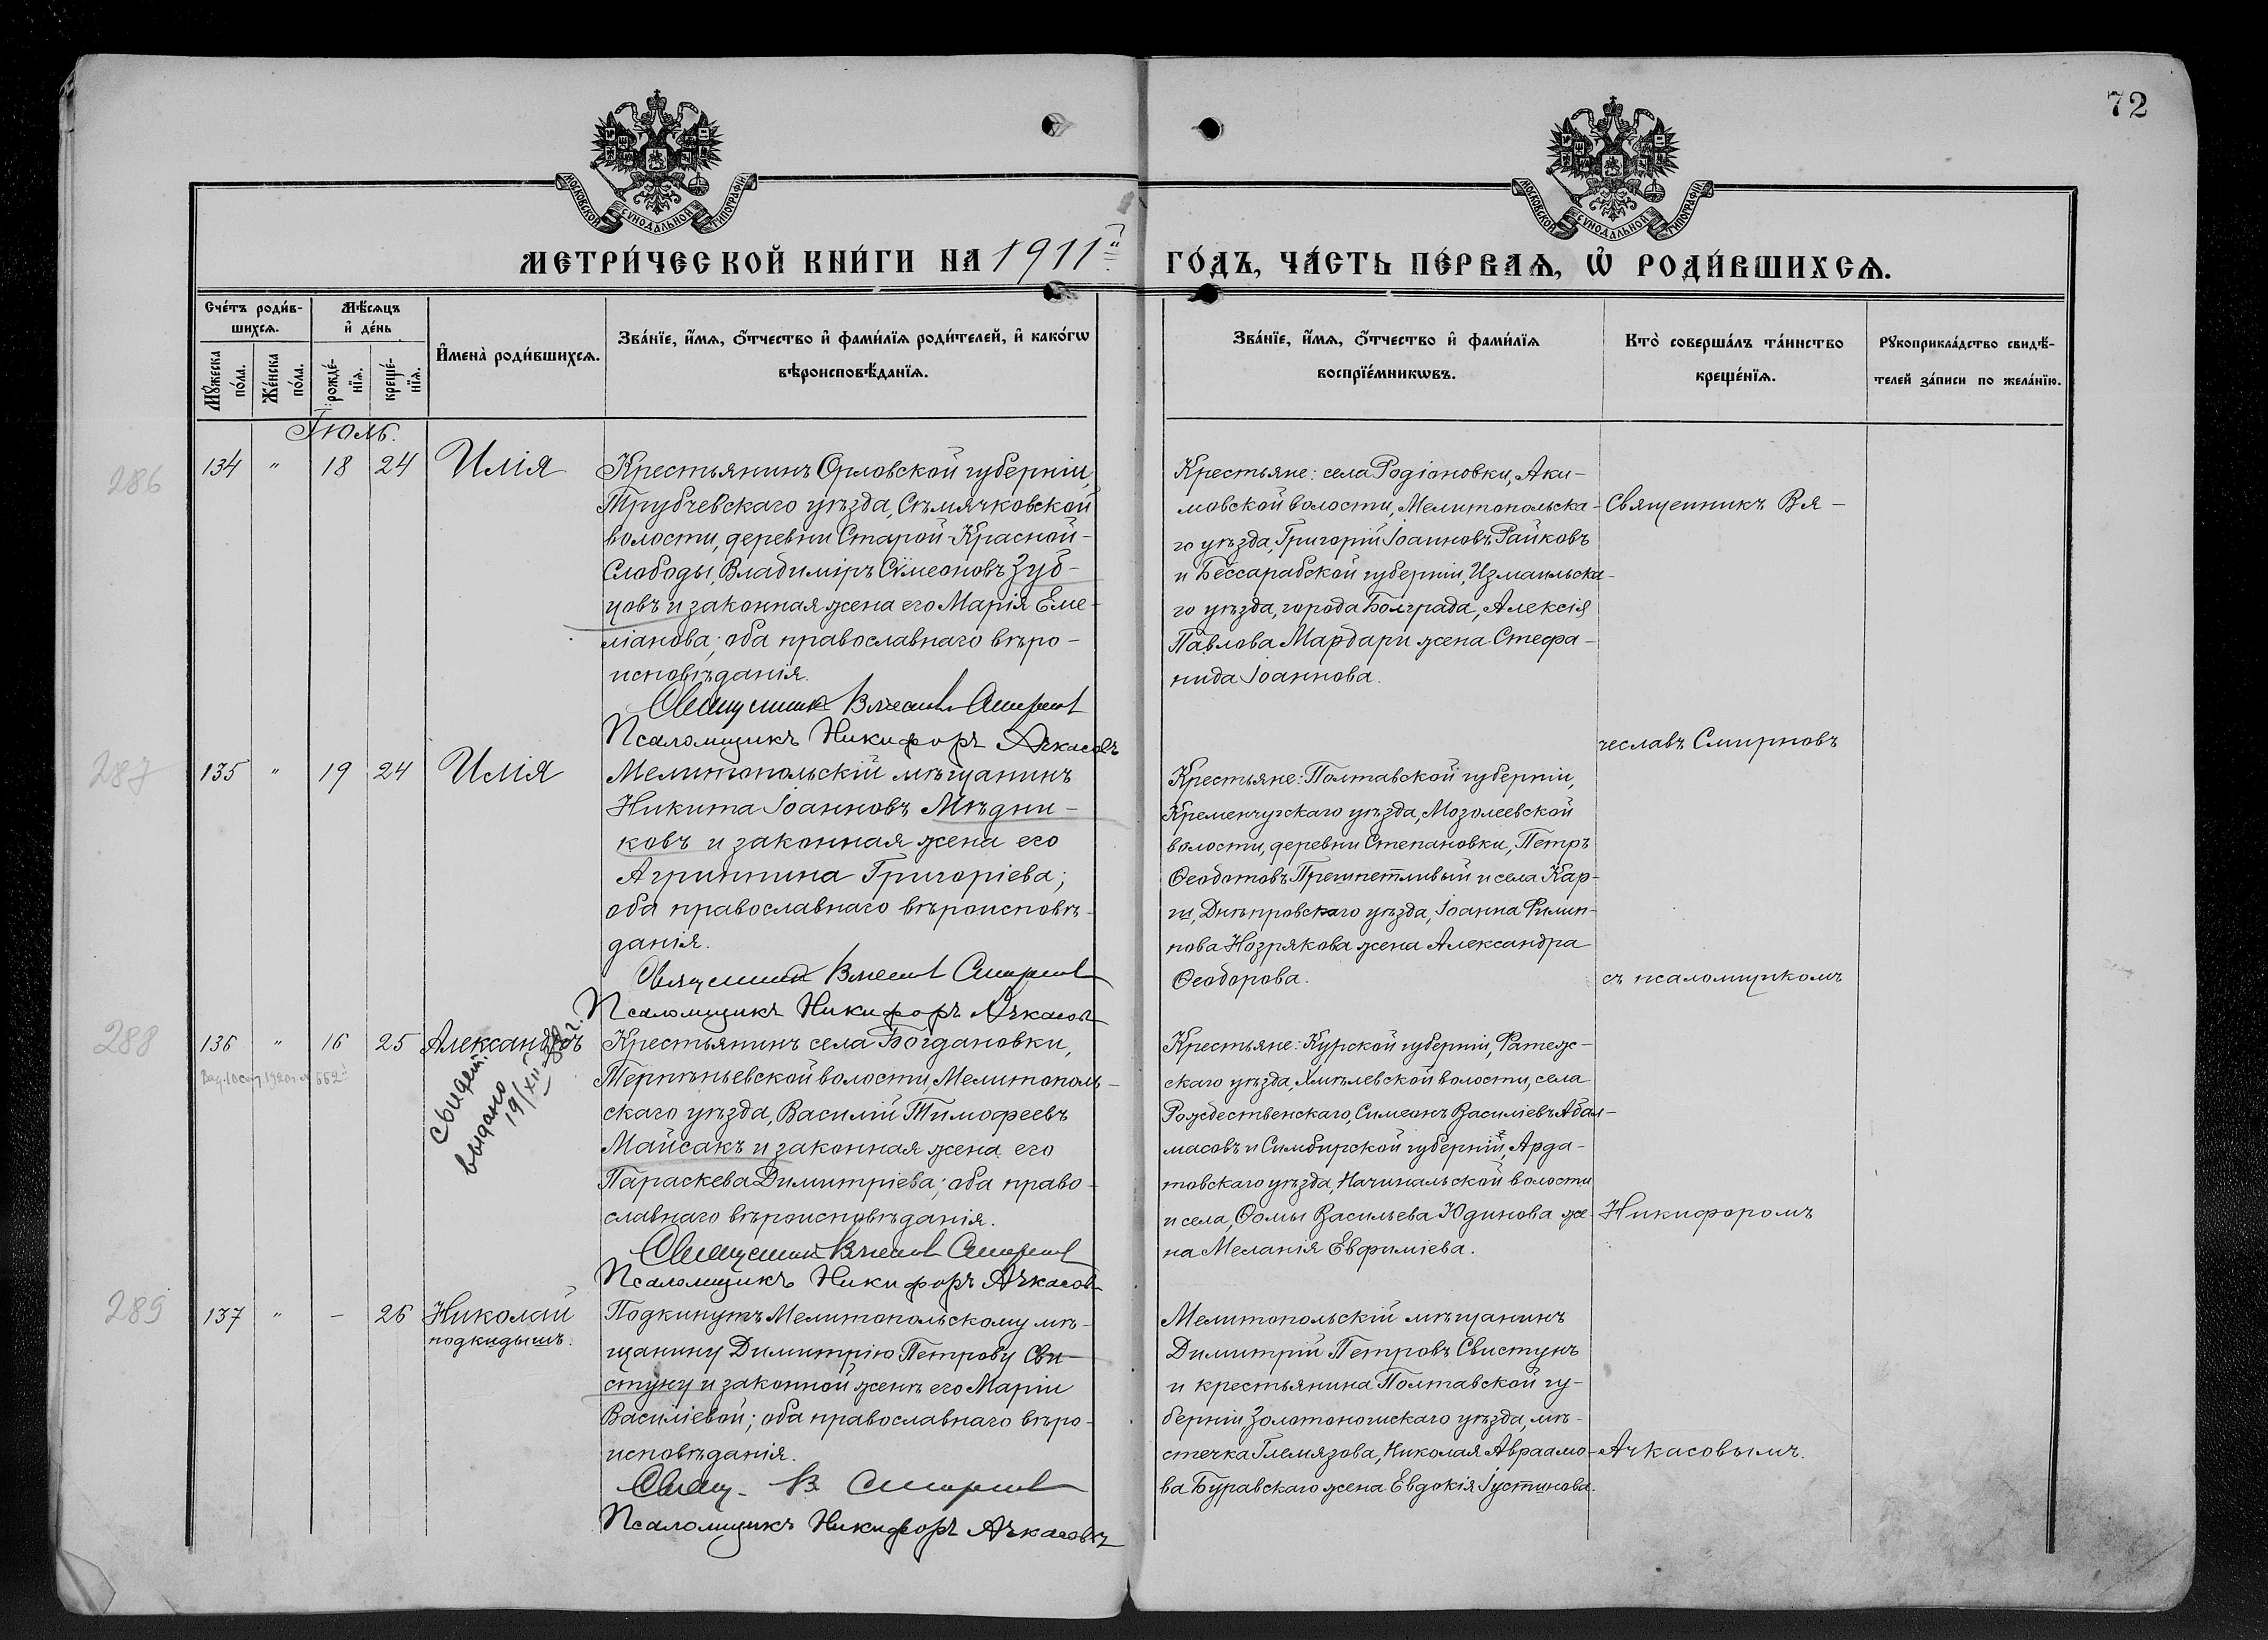 72
МОСКОВСКОЙ СУНОДАЛЬНОЙ ТИПОГРАФІИ
МОСКОВСКОЙ СУНОДАЛЬНОЙ ТИПОГРАФІИ
МЕТРИ́ЧЕСКОЙ КНИ́ГИ НА 1911й
ГО́ДЪ, ЧА́СТЬ ПЕ́РВАѦ, Ѡ҆ РОДИ́ВШИХСѦ.
Сче́тъ роди́в-
шихсѧ.
Мꙋ́жеска по́ла.
Же́нска по́ла.
Мѣ́сѧцъ
и҆ де́нь
рожде́-нїѧ.
креще́-нїѧ.
И҆мена̀ роди́вшихсѧ.
Зва́нїе, и҆́мѧ, ѻ҆́тчество и҆ фами́лїѧ роди́телей, и҆ како́гѡ
вѣроисповѣ́данїѧ.
Зва́нїе, и҆́мѧ, ѻ҆́тчество и҆ фами́лїѧ
воспрїе́мникѡвъ.
Кто̀ соверша́лъ та́инство
креще́нїѧ.
Рꙋкоприкла́дство свидѣ́-
телей за́писи по жела́нїю.
Іюль.
286
134 " 18 24 Илія
Крестьянинъ Орловской губерніи,
Трубчевскаго уѣзда, Сѣмячковской
волости, деревни Старой-Красной-
Слободы, Владиміръ Сѵмеоновъ Зуб-
цовъ и законная жена его Марія Еме-
ліанова; оба православнаго вѣро-
исповѣданія.
Священникъ Вячеславъ Смирновъ
Псаломщикъ Никифоръ Ачкасовъ
Крестьяне: села Родіоновки, Аки-
мовской волости, Мелитопольска-
го уѣзда, Григорій Іоанновъ Райковъ
и Бессарабской губерніи, Измаильска-
го уѣзда, города Болграда, Алексія
Павлова Мардари жена Стефа-
нида Іоаннова.
Священникъ Вя-
чеславъ Смирновъ
287
135 " 19 24 Илія
Мелитопольскій мѣщанинъ
Никита Іоанновъ Мѣдни-
ковъ и законная жена его
Агриппина Григоріева;
оба православнаго вѣроисповѣ-
данія.
Священникъ Вячеславъ Смирновъ
Псаломщикъ Никифоръ Ачкасовъ
Крестьяне: Полтавской губерніи,
Кременчугскаго уѣзда, Мозолеевской
волости, деревни Степановки, Петръ
Ѳеодотовъ Прешпетливый и села Кар-
ги, Днѣпровскаго уѣзда, Іоанна Филип-
пова Нозрякова жена Александра
Ѳеодорова.
съ псаломщикомъ
288
136 " 16 25 Александръ
Свидет.
выдано
19/XII
Крестьянинъ села Богдановки,
Терпѣньевской волости, Мелитополь-
скаго уѣзда, Василій Тимофеевъ
Майсакъ и законная жена его
Параскева Димитріева; оба право-
славнаго вѣроисповѣданія.
Священникъ Вячеславъ Смирновъ
Псаломщикъ Никифоръ Ачкасовъ
Крестьяне: Курской губерніи, Фатеж-
скаго уѣзда, Хмѣлевской волости, села
Рождественскаго, Симеонъ Василіевъ Абал-
масовъ и Симбирской губерніи, Арда-
товскаго уѣзда, Начинальской волости
и села, Ѳомы Васильева Юдинова же-
на Меланія Евфиміева.
Никифоромъ
289
137 " - 26 Николай
подкидышъ.
Подкинутъ Мелитопольскому мѣ-
щанину Димитрію Петрову Сви-
стуну и законной женѣ его Маріи
Василіевой; оба православнаго вѣро-
исповѣданія.
Свящ. В Смирновъ
Псаломщикъ Никифоръ Ачкасовъ
Мелитопольскій мѣщанинъ
Димитрій Петровъ Свистунъ
и крестьянина Полтавской гу-
берніи Золотоношскаго уѣзда, мѣ-
стечка Глемязова, Николая Авраамо-
ва Буравскаго жена Евдокія Іустинова.
Ачкасовымъ.